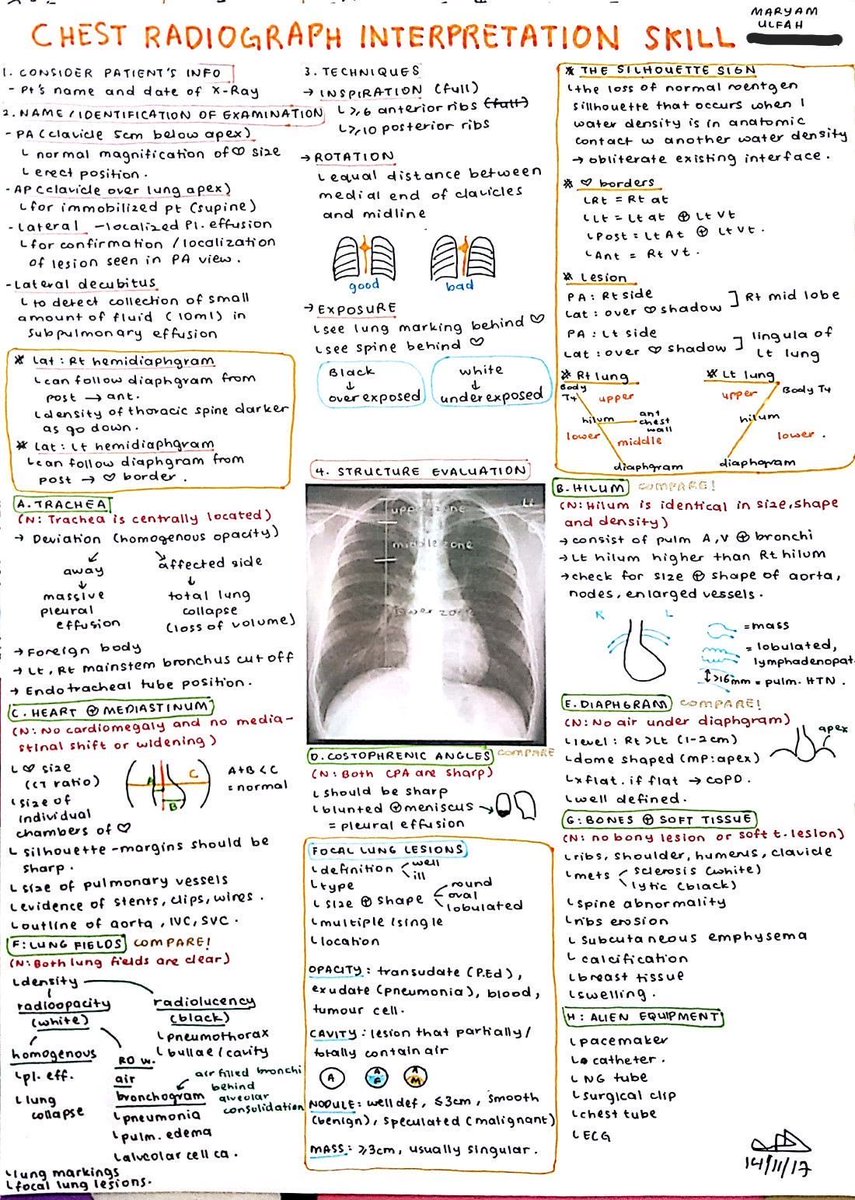 MARYAM
ULFAH
CHEST RADIOGRAPH INTERPRETATION SKILL
1. CONSIDER PATIENT'S INFO
- Pt's name and date of X-Ray
2. NAME / IDENTIFICATION OF EXAMINATION
- PA (clavicle 5cm below apex)
↳ normal magnification of ♡ size
↳ erect position.
- AP (clavicle over lung apex)
↳ for immobilized pt (supine)
- Lateral - localized Pl. effusion
↳ for confirmation / localization
of lesion seen in PA view.
- Lateral decubitus
↳ to detect collection of small
amount of fluid (10ml) in
subpulmonary effusion
* Lat : Rt hemidiaphgram
↳ can follow diaphgram from
post → ant.
↳ density of thoracic spine darker
as go down.
* Lat : Lt hemidiaphgram
↳ can follow diaphgram from
post → ♡ border.
3. TECHNIQUES
→ INSPIRATION (full)
↳ ≥6 anterior ribs (full)
↳ ≥10 posterior ribs
→ ROTATION
↳ equal distance between
medial end of clavicles
and midline
good bad
→ EXPOSURE
↳ see lung marking behind ♡
↳ see spine behind ♡
Black
↓
overexposed
white
↓
underexposed
* THE SILHOUETTE SIGN
↳ the loss of normal roentgen
silhouette that occurs when 1
water density is in anatomic
contact w another water density
→ obliterate existing interface.
* ♡ borders
↳ Rt = Rt at
↳ Lt = Lt at ⊕ Lt Vt
↳ Post = Lt At ⊕ Lt Vt.
↳ Ant = Rt Vt.
* Lesion
PA : Rt side
Lat : over ♡ shadow ] Rt mid lobe
PA : Lt side
Lat : over ♡ shadow ] lingula of
Lt lung
* Rt lung
Body
T4
upper
hilum
ant
chest
wall
lower
middle
diaphgram
* Lt lung
upper
Body T4
hilum
lower.
diaphgram
4. STRUCTURE EVALUATION
Lt
upper zone
middle zone
lower zone
A. TRACHEA
(N: Trachea is centrally located)
→ Deviation (homogenous opacity)
away
↓
massive
pleural
effusion
affected side
↓
total lung
collapse
(loss of volume)
→ Foreign body
→ Lt, Rt mainstem bronchus cut off
→ Endotracheal tube position.
B. HILUM COMPARE!
(N: Hilum is identical in size, shape
and density)
→ consist of pulm A, V ⊕ bronchi
→ Lt hilum higher than Rt hilum
→ check for size ⊕ shape of aorta,
nodes, enlarged vessels.
R L
= mass
= lobulated,
lymphadenopat.
>16mm = pulm. HTN.
C. HEART ⊕ MEDIASTINUM
(N: No cardiomegaly and no media-
stinal shift or widening)
↳ ♡ size
(CT ratio)
A B C
A+B < C
= normal
↳ size of
individual
chambers of ♡
↳ silhouette - margins should be
sharp.
↳ size of pulmonary vessels
↳ evidence of stents, clips, wires.
↳ outline of aorta, IVC, SVC.
D. COSTOPHRENIC ANGLES COMPARE
(N: Both CPA are sharp)
↳ should be sharp
↳ blunted ⊕ meniscus →
= pleural effusion
E. DIAPHGRAM COMPARE!
(N: No air under diaphgram)
↳ level : Rt > Lt (1-2cm)
↳ dome shaped (MP: apex)
apex
↳ x flat. if flat → COPD.
↳ well defined.
F: LUNG FIELDS COMPARE!
(N: Both lung fields are clear)
↳ density
radioopacity
(white)
radiolucency
(black)
↳ pneumothorax
↳ bullae / cavity
homogenous
↳ pl. eff.
↳ lung
collapse
RO w.
air
bronchogram
air filled bronchi
behind
alveolar
consolidation
↳ pneumonia
↳ pulm. edema
↳ alveolar cell ca.
↳ lung markings
↳ focal lung lesions.
FOCAL LUNG LESIONS
↳ definition < well
ill
↳ type
↳ size ⊕ shape < round
oval
lobulated
↳ multiple / single
↳ location
OPACITY : transudate (P.Ed),
exudate (pneumonia), blood,
tumour cell.
CAVITY : lesion that partially /
totally contain air
A
A
F
A
M
NODULE : well def, ≤3cm, smooth
(benign), speculated (malignant)
MASS : ≥3cm, usually singular.
G: BONES ⊕ SOFT TISSUE
(N: no bony lesion or soft t. lesion)
↳ ribs, shoulder, humerus, clavicle
↳ mets < sclerosis (white)
lytic (black)
↳ spine abnormality
↳ ribs erosion
↳ subcutaneous emphysema
↳ calcification
↳ breast tissue
↳ swelling.
H: ALIEN EQUIPMENT
↳ pacemaker
↳ catheter.
↳ NG tube
↳ surgical clip
↳ chest tube
↳ ECG
14/11/17